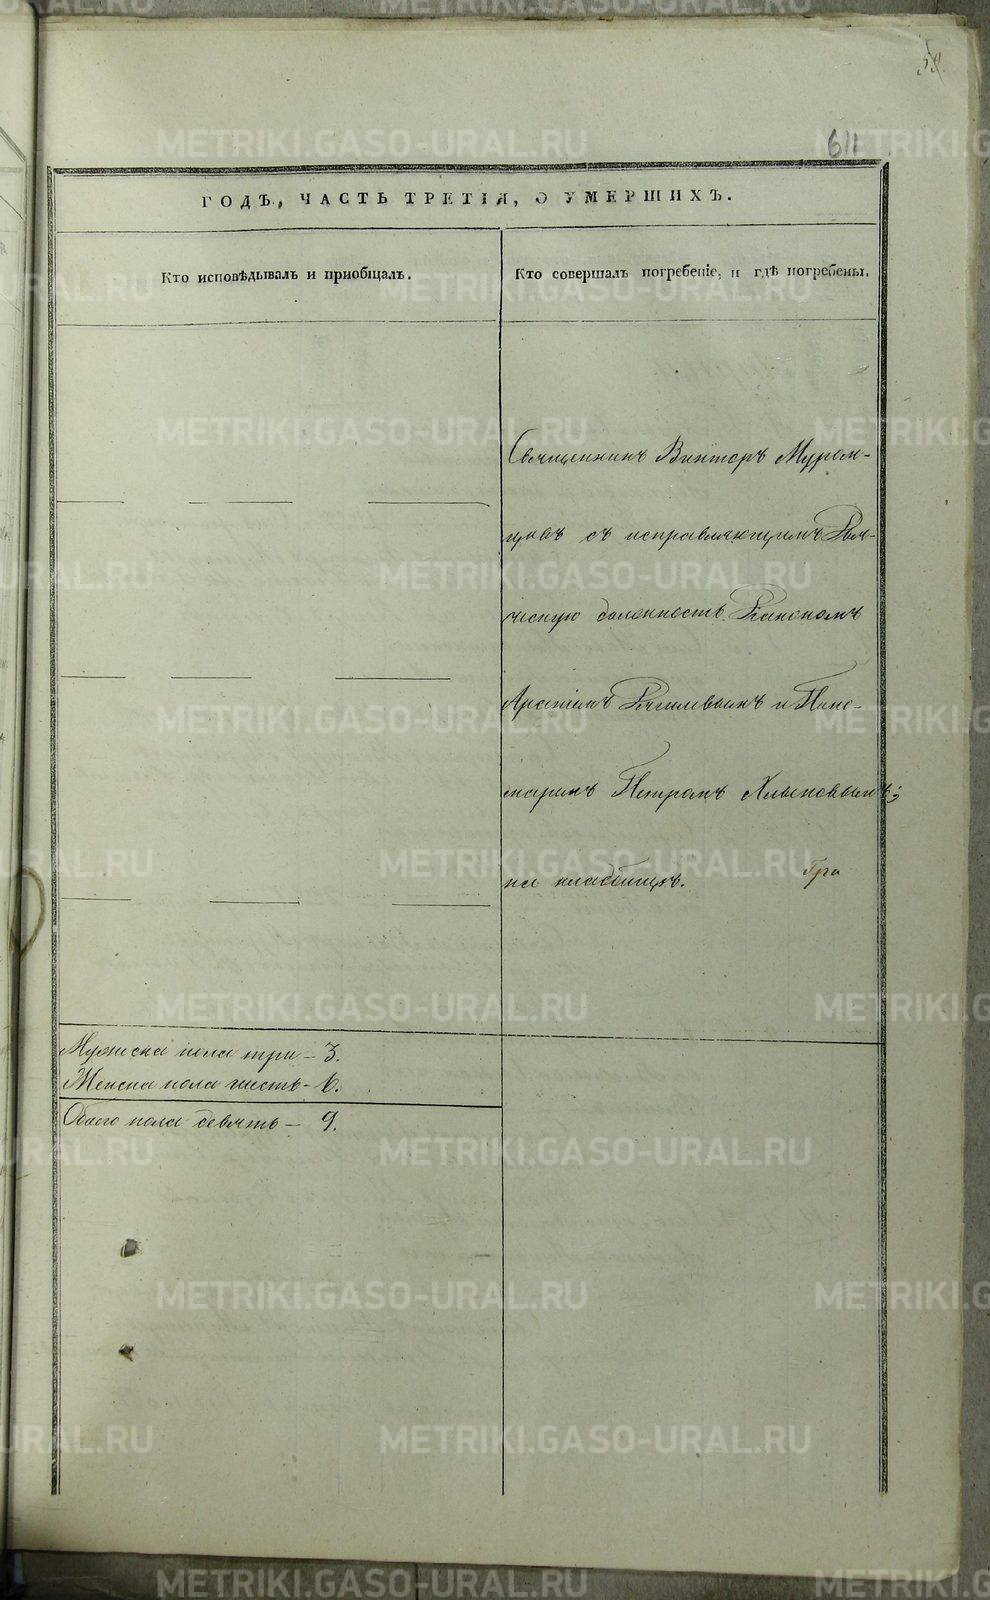 59.
611
ГОДЪ, ЧАСТЬ ТРЕТІЯ, О УМЕРШИХЪ.
Кто исповѣдывалъ и пріобщалъ.
Кто совершалъ погребеніе, и гдѣ погребены.
Священникъ Викторъ Муром-
цовъ съ исправляющимъ
ческую должность Діакономъ
и Поно-
маремъ Петромъ Хлыновымъ;
на кладбищѣ.
Мужеска пола три – 3.
Женска пола шесть – 6.
Обоего пола девять – 9.
METRIKI.GASO-URAL.RU